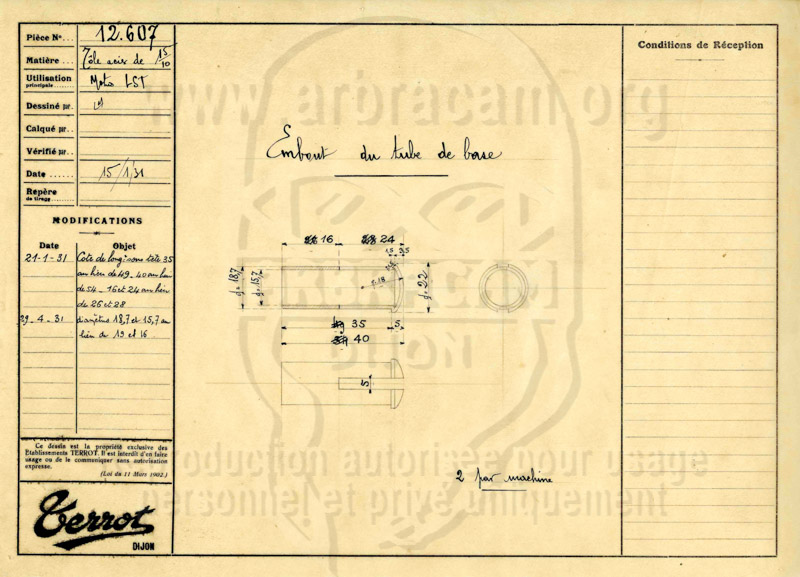 www.arbracam.org
Pièce No... 12.607
Matière... Tôle acier de 15/10
Utilisation
principale....... Moto LST
Dessiné par.
Calqué par..
Vérifié par..
Date ...... 15/1/31
Repère
de tirage........
MODIFICATIONS
Date Objet
21-1-31 Cote de long. sous tête 35
au lieu de 49 - 40 au lieu
de 54 - 16 et 24 au lieu
de 26 et 28
29-4-31 diamètres 18,7 et 15,7 au
lieu de 19 et 16
Ce dessin est la propriété exclusive des
Etablissements TERROT. Il est interdit d'en faire
usage ou de le communiquer sans autorisation
expresse.
(Loi du 11 Mars 1902.)
Terrot
DIJON
Embout du tube de base
16 24
1,5 3,5
d=18,7
d=15,7
r=18
d=22
35 5
40
5
2 par machine
Conditions de Réception
ARBRACAM
DIJON
reproduction autorisée pour usage
personnel et privé uniquement